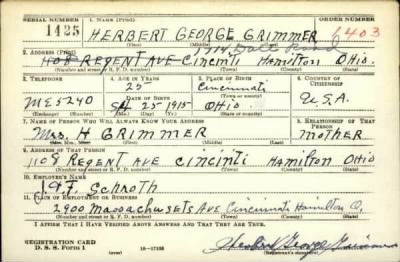 SERIAL NUMBER 1. NAME (Print) ORDER NUMBER
1425 HERBERT GEORGE GRIMMER 6403
(First) (Middle) (Last)
2. ADDRESS (Print)
1108 REGENT AVE CINCINTI HAMILTON OHIO.
(Number and street or R. F. D. number) (Town) (County) (State)
3. TELEPHONE 4. AGE IN YEARS 5. PLACE OF BIRTH 6. COUNTRY OF CITIZENSHIP
25 Cincinnati
ME5240 DATE OF BIRTH (Town or county)
25 1915 OHIO U.S.A.
(Exchange) (Number) (Mo.) (Day) (Yr.) (State or country)
7. NAME OF PERSON WHO WILL ALWAYS KNOW YOUR ADDRESS 8. RELATIONSHIP OF THAT PERSON
Mrs. H GRIMMER MOTHER
(Mr., Mrs., Miss) (First) (Middle) (Last)
9. ADDRESS OF THAT PERSON
1108 REGENT AVE CINCINTI HAMILTON OHIO
(Number and street or R. F. D. number) (Town) (County) (State)
10. EMPLOYER'S NAME
J. & F. Schroth
11. PLACE OF EMPLOYMENT OR BUSINESS
2900 Massachusets Ave Cincinnati Hamilton O.
(Number and street or R. F. D. number) (Town) (County) (State)
I AFFIRM THAT I HAVE VERIFIED ABOVE ANSWERS AND THAT THEY ARE TRUE.
REGISTRATION CARD
D. S. S. Form 1 16-17105 Herbert George Grimmer
(Registrant's signature)